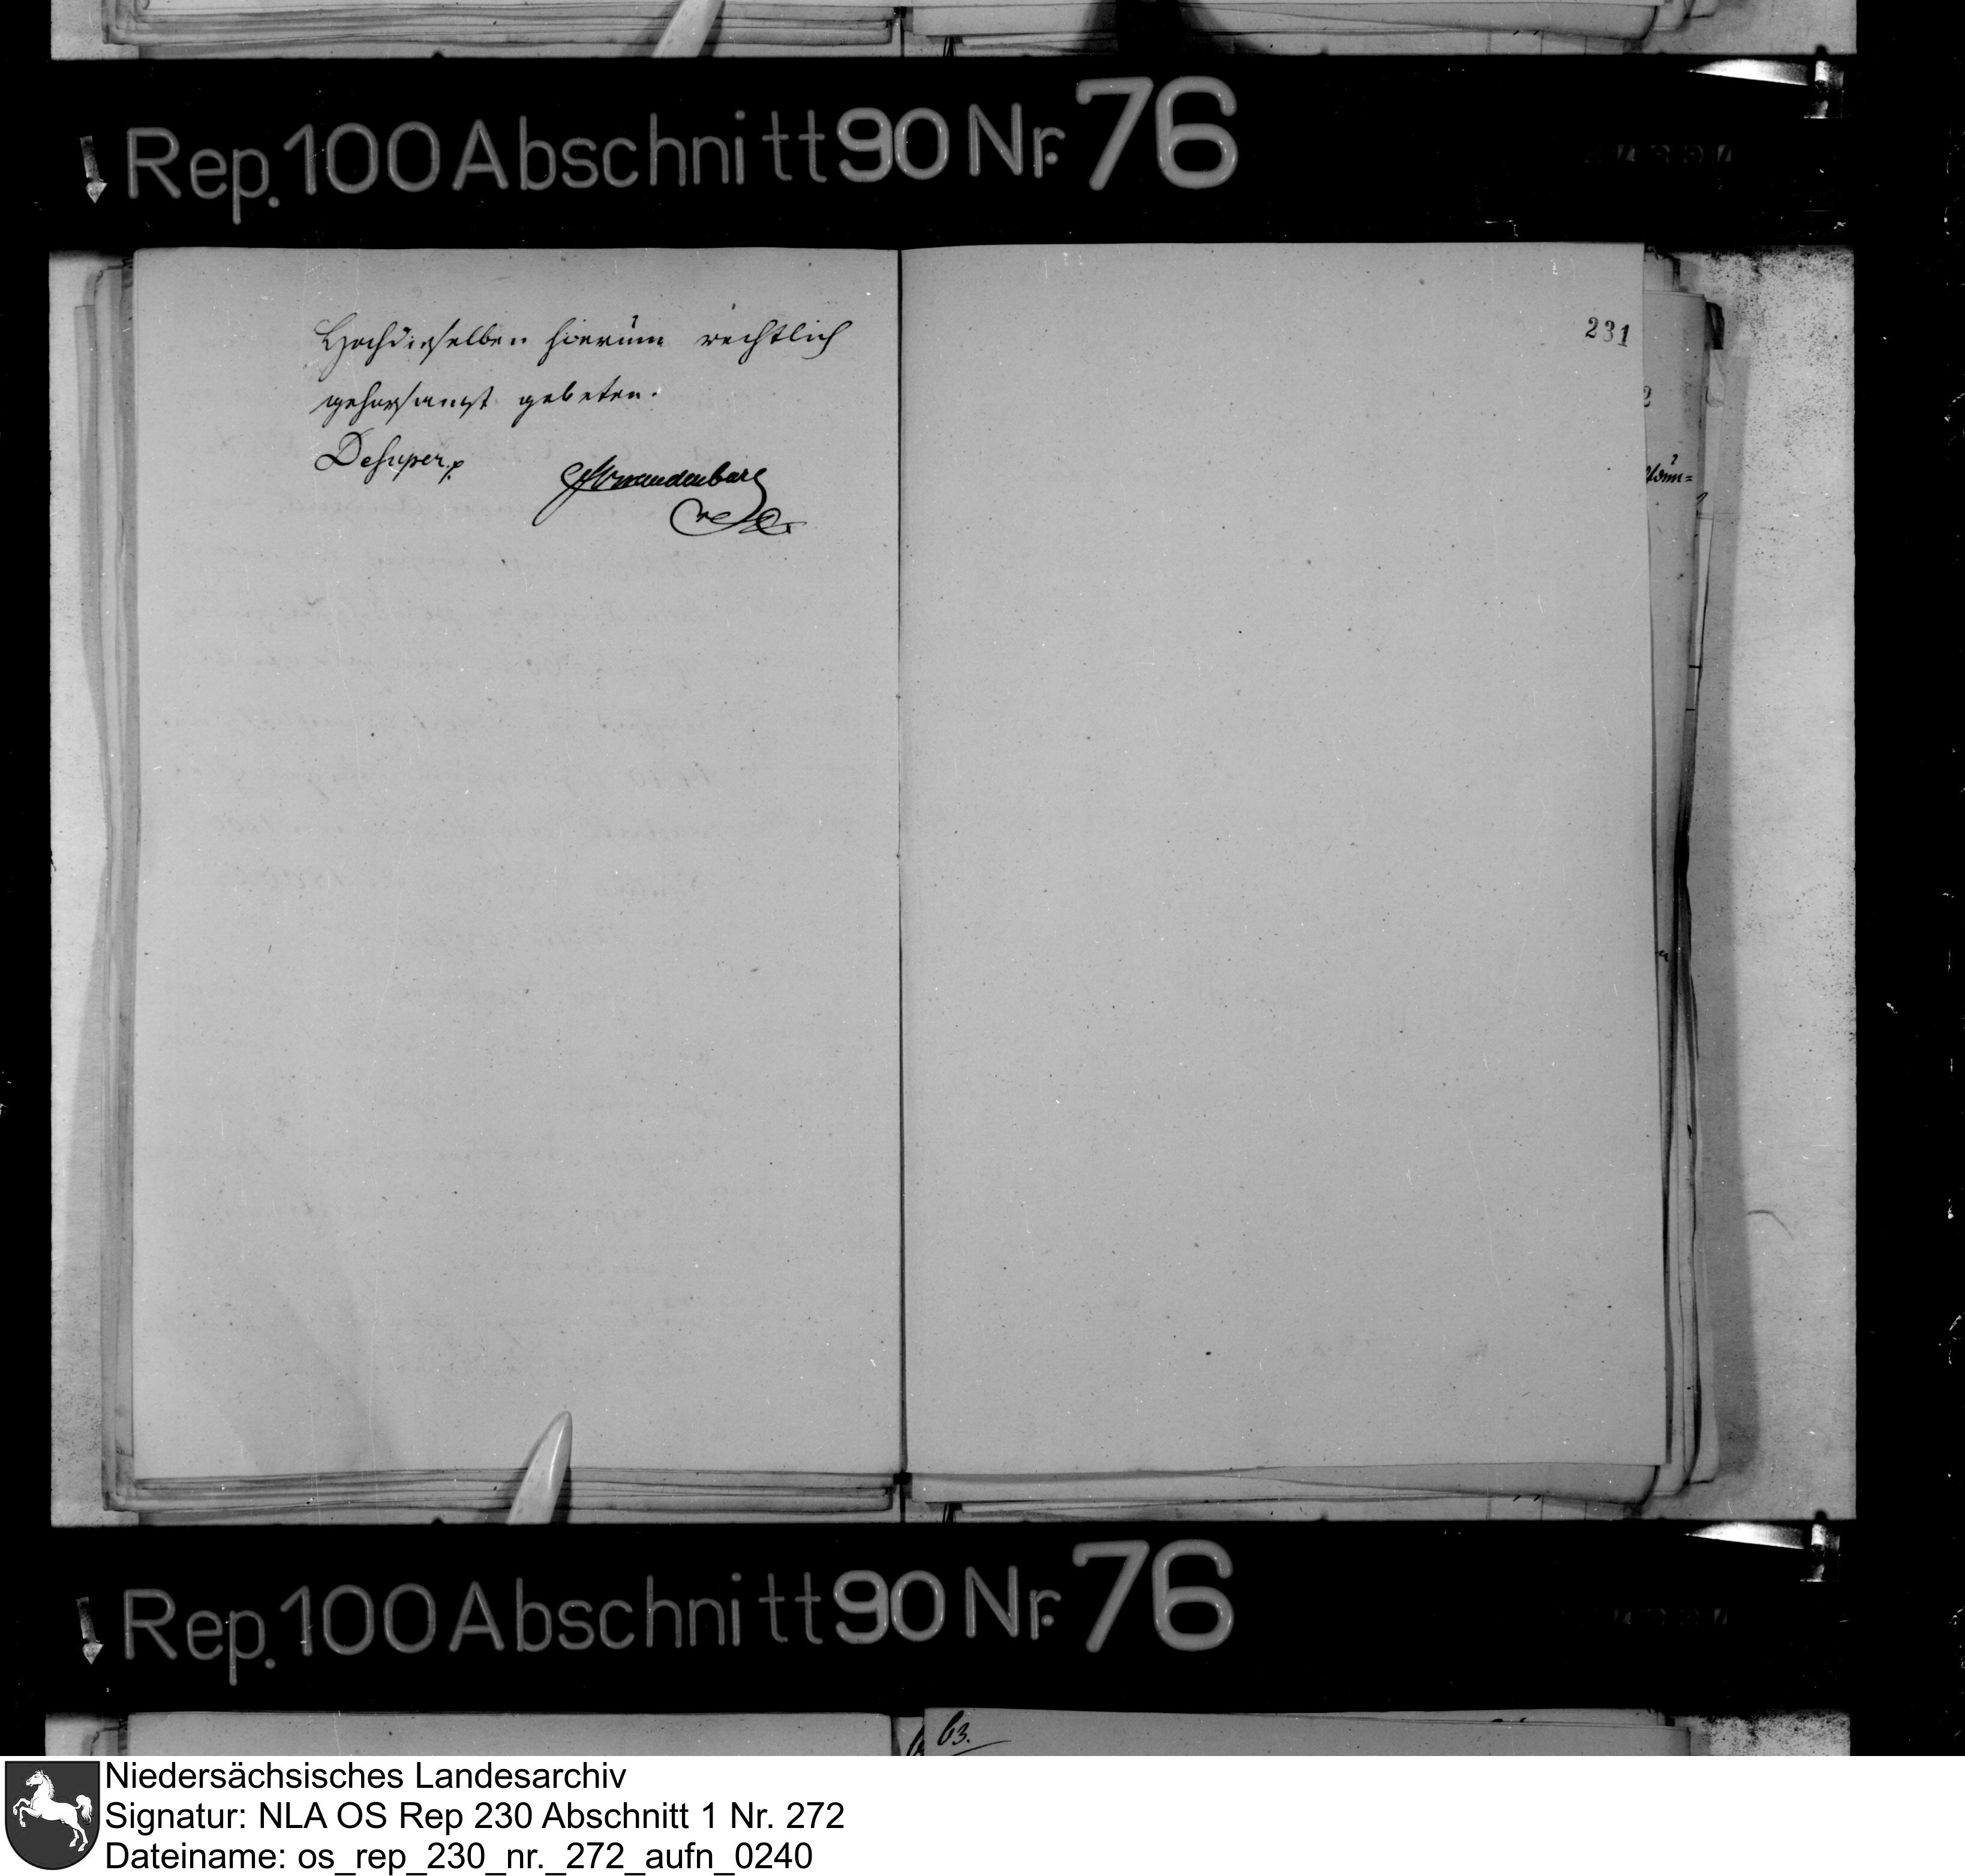 Rep. 100 Abschnitt 90 Nr. 76
Hochdieselben hierum rechtlich
gehorsamst gebeten.
Desuper p
Brandenburg
231
Rep. 100 Abschnitt 90 Nr. 76
63.
Niedersächsisches Landesarchiv
Signatur: NLA OS Rep 230 Abschnitt 1 Nr. 272
Dateiname: os_rep_230_nr._272_aufn_0240